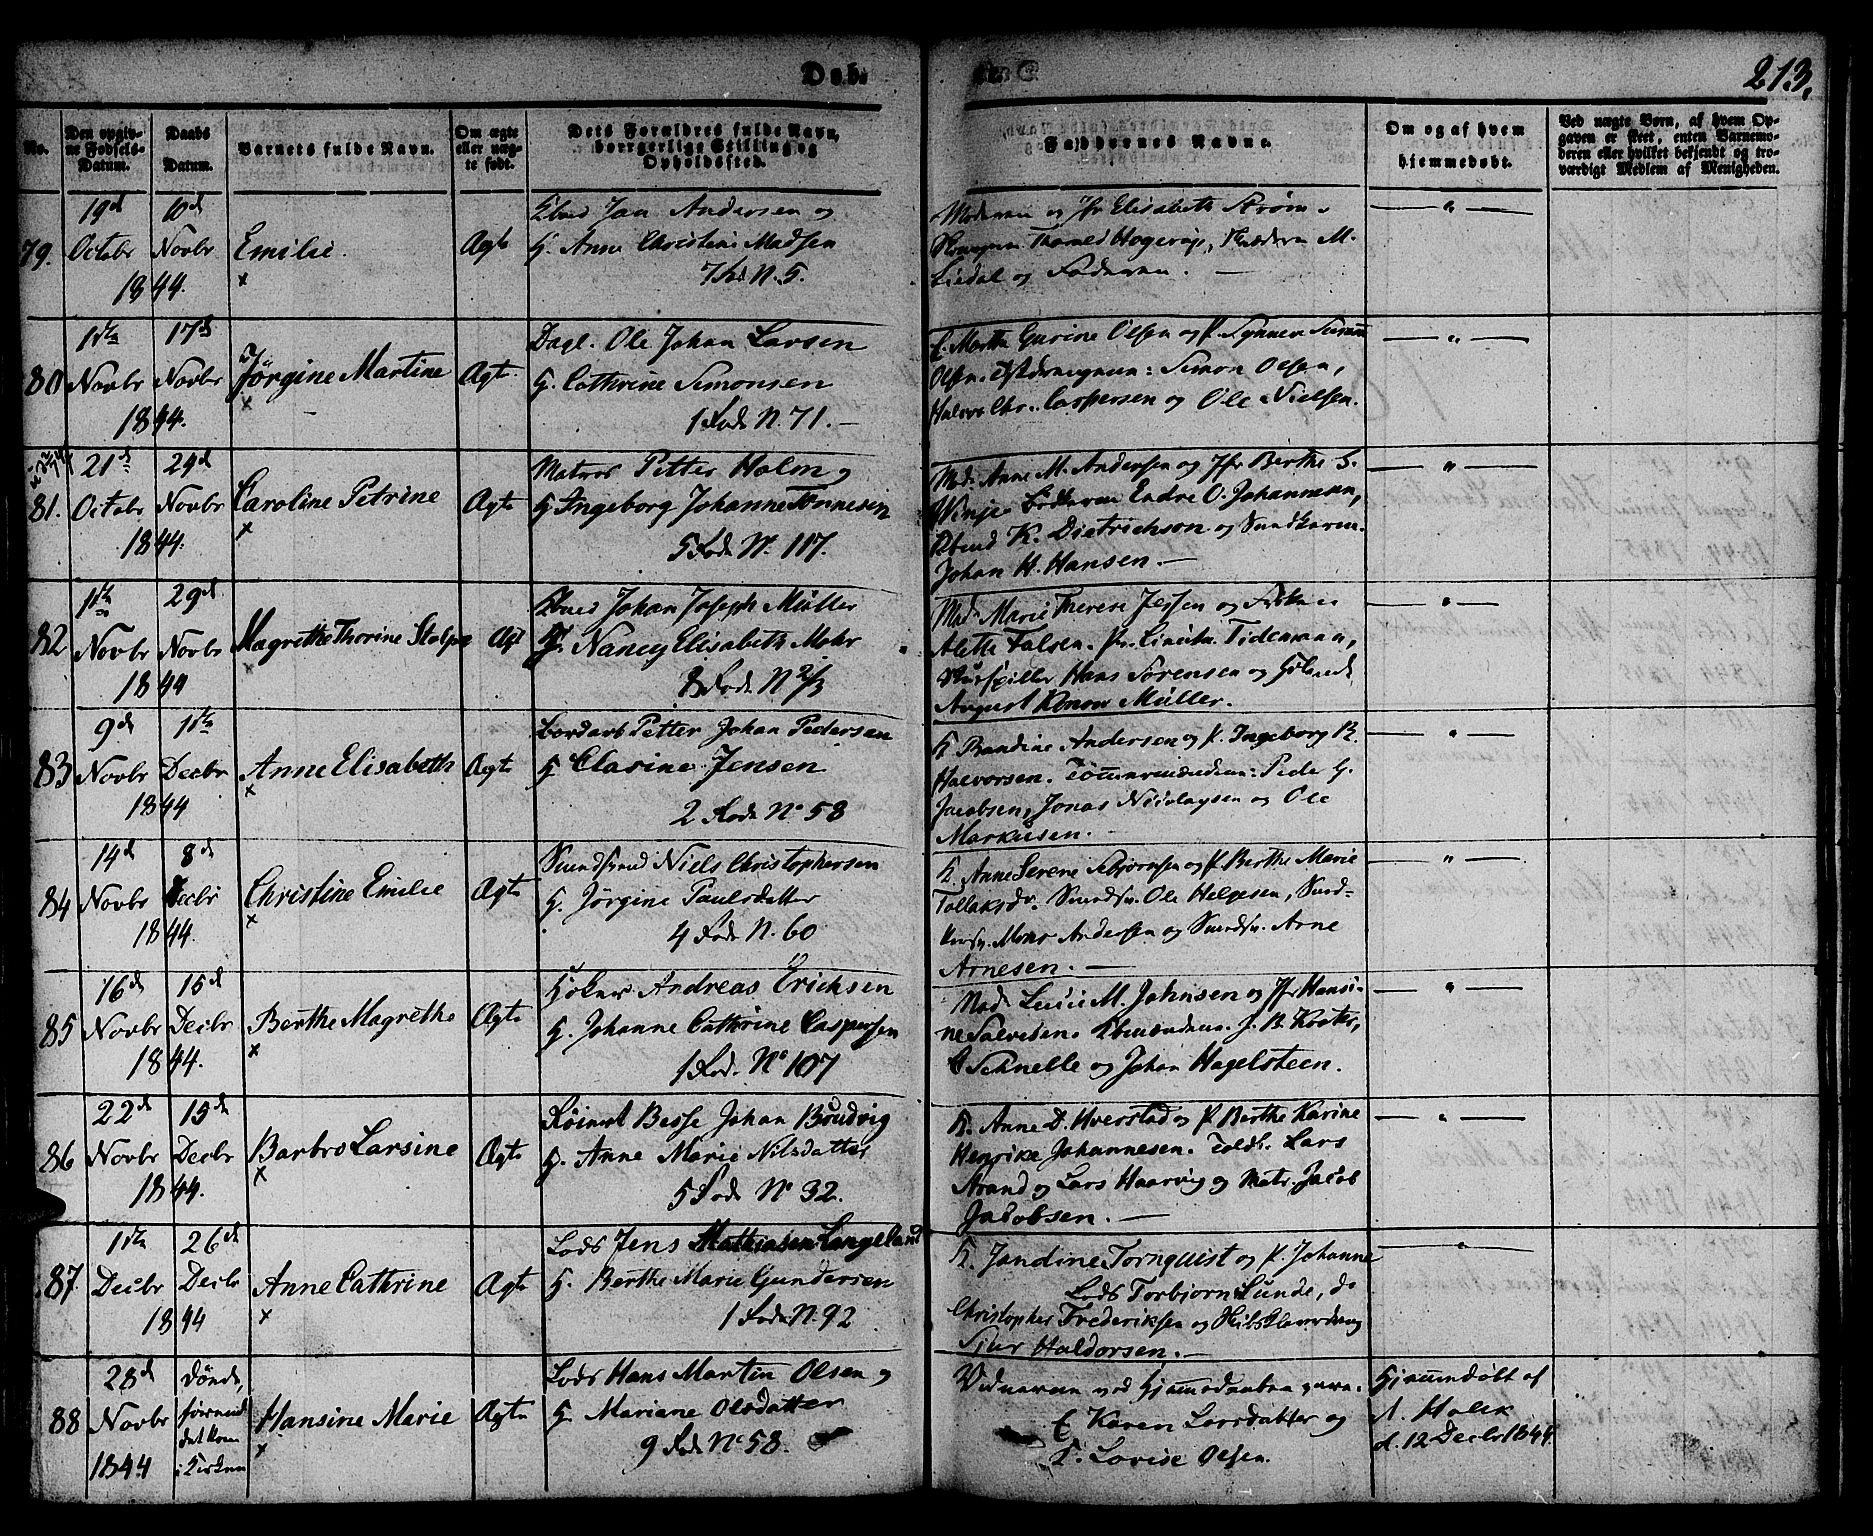 Døb.
213.
No.
Den opgiv-
ne Fødsels-
Datum.
Daabs
Datum.
Barnets fulde Navn.
Om ægte
eller uæg-
te født.
Dets Forældres fulde Navn,
borgerlige Stilling og
Opholdssted.
Faddernes Navne.
Om og af hvem
hjemmedøbt.
Ved uægte Børn, af hvem Op-
gaven er skeet, enten Barnemo-
deren eller hvilket bekjendt og tro-
værdigt Medlem af Menigheden.
79.
19d
Octobr
1844.
10d
Novbr
Emilie.
×
Ægte
Jan Andersen og
H. Anne Christine Madsen
7 Rod N. 5.
Moderen og Jfr Elisabeth Strøm.
Liedal og Faderen. —
— " —
80
1ste
Novbr
1844.
17d
Novbr
Jörgine Martine
×
Ægte.
Dagl. Ole Johan Larsen
H. Cathrine Simonsen
1 Rode N. 71. —
K. Marthe Gurine Olsen og P. Synneve
Olsen. Simon Olsen,
Halvor Chr. Caspersen og Ole Nielsen.
— " —
81.
21d
Octobr
1844.
24d
Novbr
Caroline Petrine
×
Ægte
Matros Petter Holm og
H Ingeborg Johanne Tönnesen
5 Rode No. 117.
Mad: Anne M. Andersen og Jfr Berthe S.
Winje. Bödkeren Endre O. Johannesen,
K. Dietrichson og
Johan H. Hansen. —
— " —
82
1ste
Novbr
1844
29d
Novbr
Magrethe Thorine Stolpe
Ægt
Johan Joseph Müller
H. Nancy Elisabeth Mohr
8 Rode N 2/3
Mad: Marie Therese Jessen og Frøken
Alette Falsen. Tidemann,
Skuespiller Hans Sörensen og
August Konow Müller.
— " —
83
9d
Novbr
1844
1ste
Decbr
Anne Elisabeth
×
Ægte
Petter Johan Pedersen
H Clasine Jensen
2 Rode No 58
K. Randine Andersen og P. Ingeborg R.
Halvorsen. Tømmermændene: Peder G.
Jacobsen, Jonas Nicolaysen og Ole
Markusen. —
— " —
84
14d
Novbr
1844.
8d
Decbr
Christine Emilie
×
Ægte
Niels Christophersen
H. Jörgine Paulsdatter
4 Rode N. 60
K. Anne Serene Asbjørnsen og P. Berthe Marie
Tollaksdr. Ole Helgesen,
Mons Andersen og Arne
Arnesen. —
— " —
85
16d
Novbr
1844.
15d
Decbr
Berthe Magrethe
×
Ægte
Høker Andreas Erichsen
H. Johanne Cathrine Caspersen
1 Rod. No 107
Mad. Lucie M. Johnsen og Jfr Hansi-
ne Salvesen. Kbmændene. J. B.
Schnelle og Johan Hagelsteen.
— " —
86
22d
Novbr
1844.
15d
Decbr
Barbro Larsine
×
Ægte
Besse Johan
H. Anne Marie Nilsdatter
5 Rode No 32.
K. Anne D. Hverstad og P. Berthe Karine
Henrike Johannesen. Toldb. Lars
Strand og Lars Haarvig og Matr. Jacob
Jacobsen. —
— " —
87
1ste
Decbr
1844
26d
Decbr
Anne Cathrine
×
Ægte
Lods Jens Mathiasen Langeland
H. Berthe Marie Gundersen
1 Rode N. 92
K. Jandine Tornquist og P. Johanne
Lods Torbjørn Lunde, do
Christopher Frederiksen og
Sjur Haldorsen. —
— " —
88
28d
Novbr
1844
Døde,
førend
det kom
i Kirken
Hansine Marie
×
Ægte
Lods Hans Martin Olsen og
H. Mariane Olsdatter
9 Rode No 58.
Vidnerne ved Hjemmedaaben vare.
K. Karen Larsdatter og
P. Lovise Olsen.
Hjemmdøbt af
A. Holck
d. 12 Decbr 1844